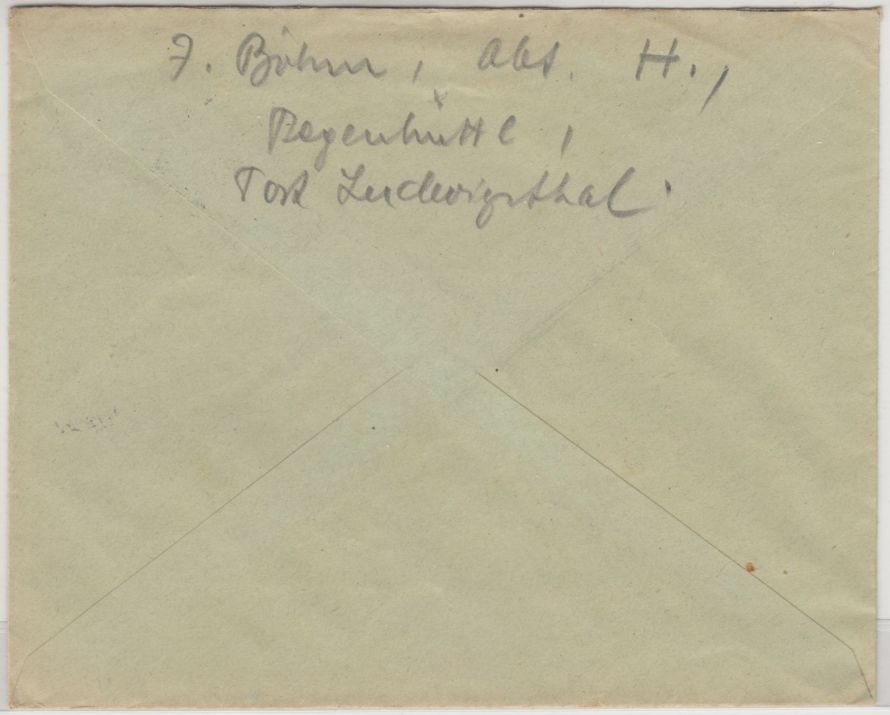 J. Böhm, Abt. H.,
Regenhüttl,
Post Ludwigsthal.